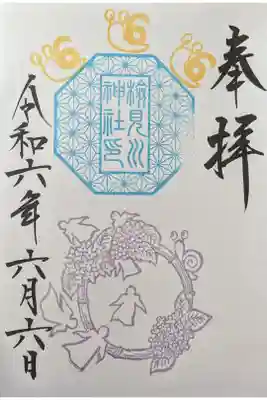 奉拝
検見川
神社印
令和六年六月六日